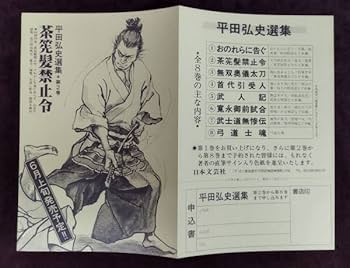 平田弘史選集●第2巻
茶筅髪禁止令
6月上旬発売予定!!
平田弘史選集
●全8巻の主な内容●
①おのれらに告ぐ
②茶筅髪禁止令
③無双奥儀太刀
④首代引受人
⑤武人記
⑥寛永御前試合
⑦武士道無惨伝
⑧弓道士魂
●第1巻をお買い上げになり、さらに第2巻から第8巻まで予約された皆様には、もれなく著者の直筆サイン入り色紙を進呈いたします。
日本文芸社
申込書
平田弘史選集
第2巻から第8巻まで申し込みます
書店印